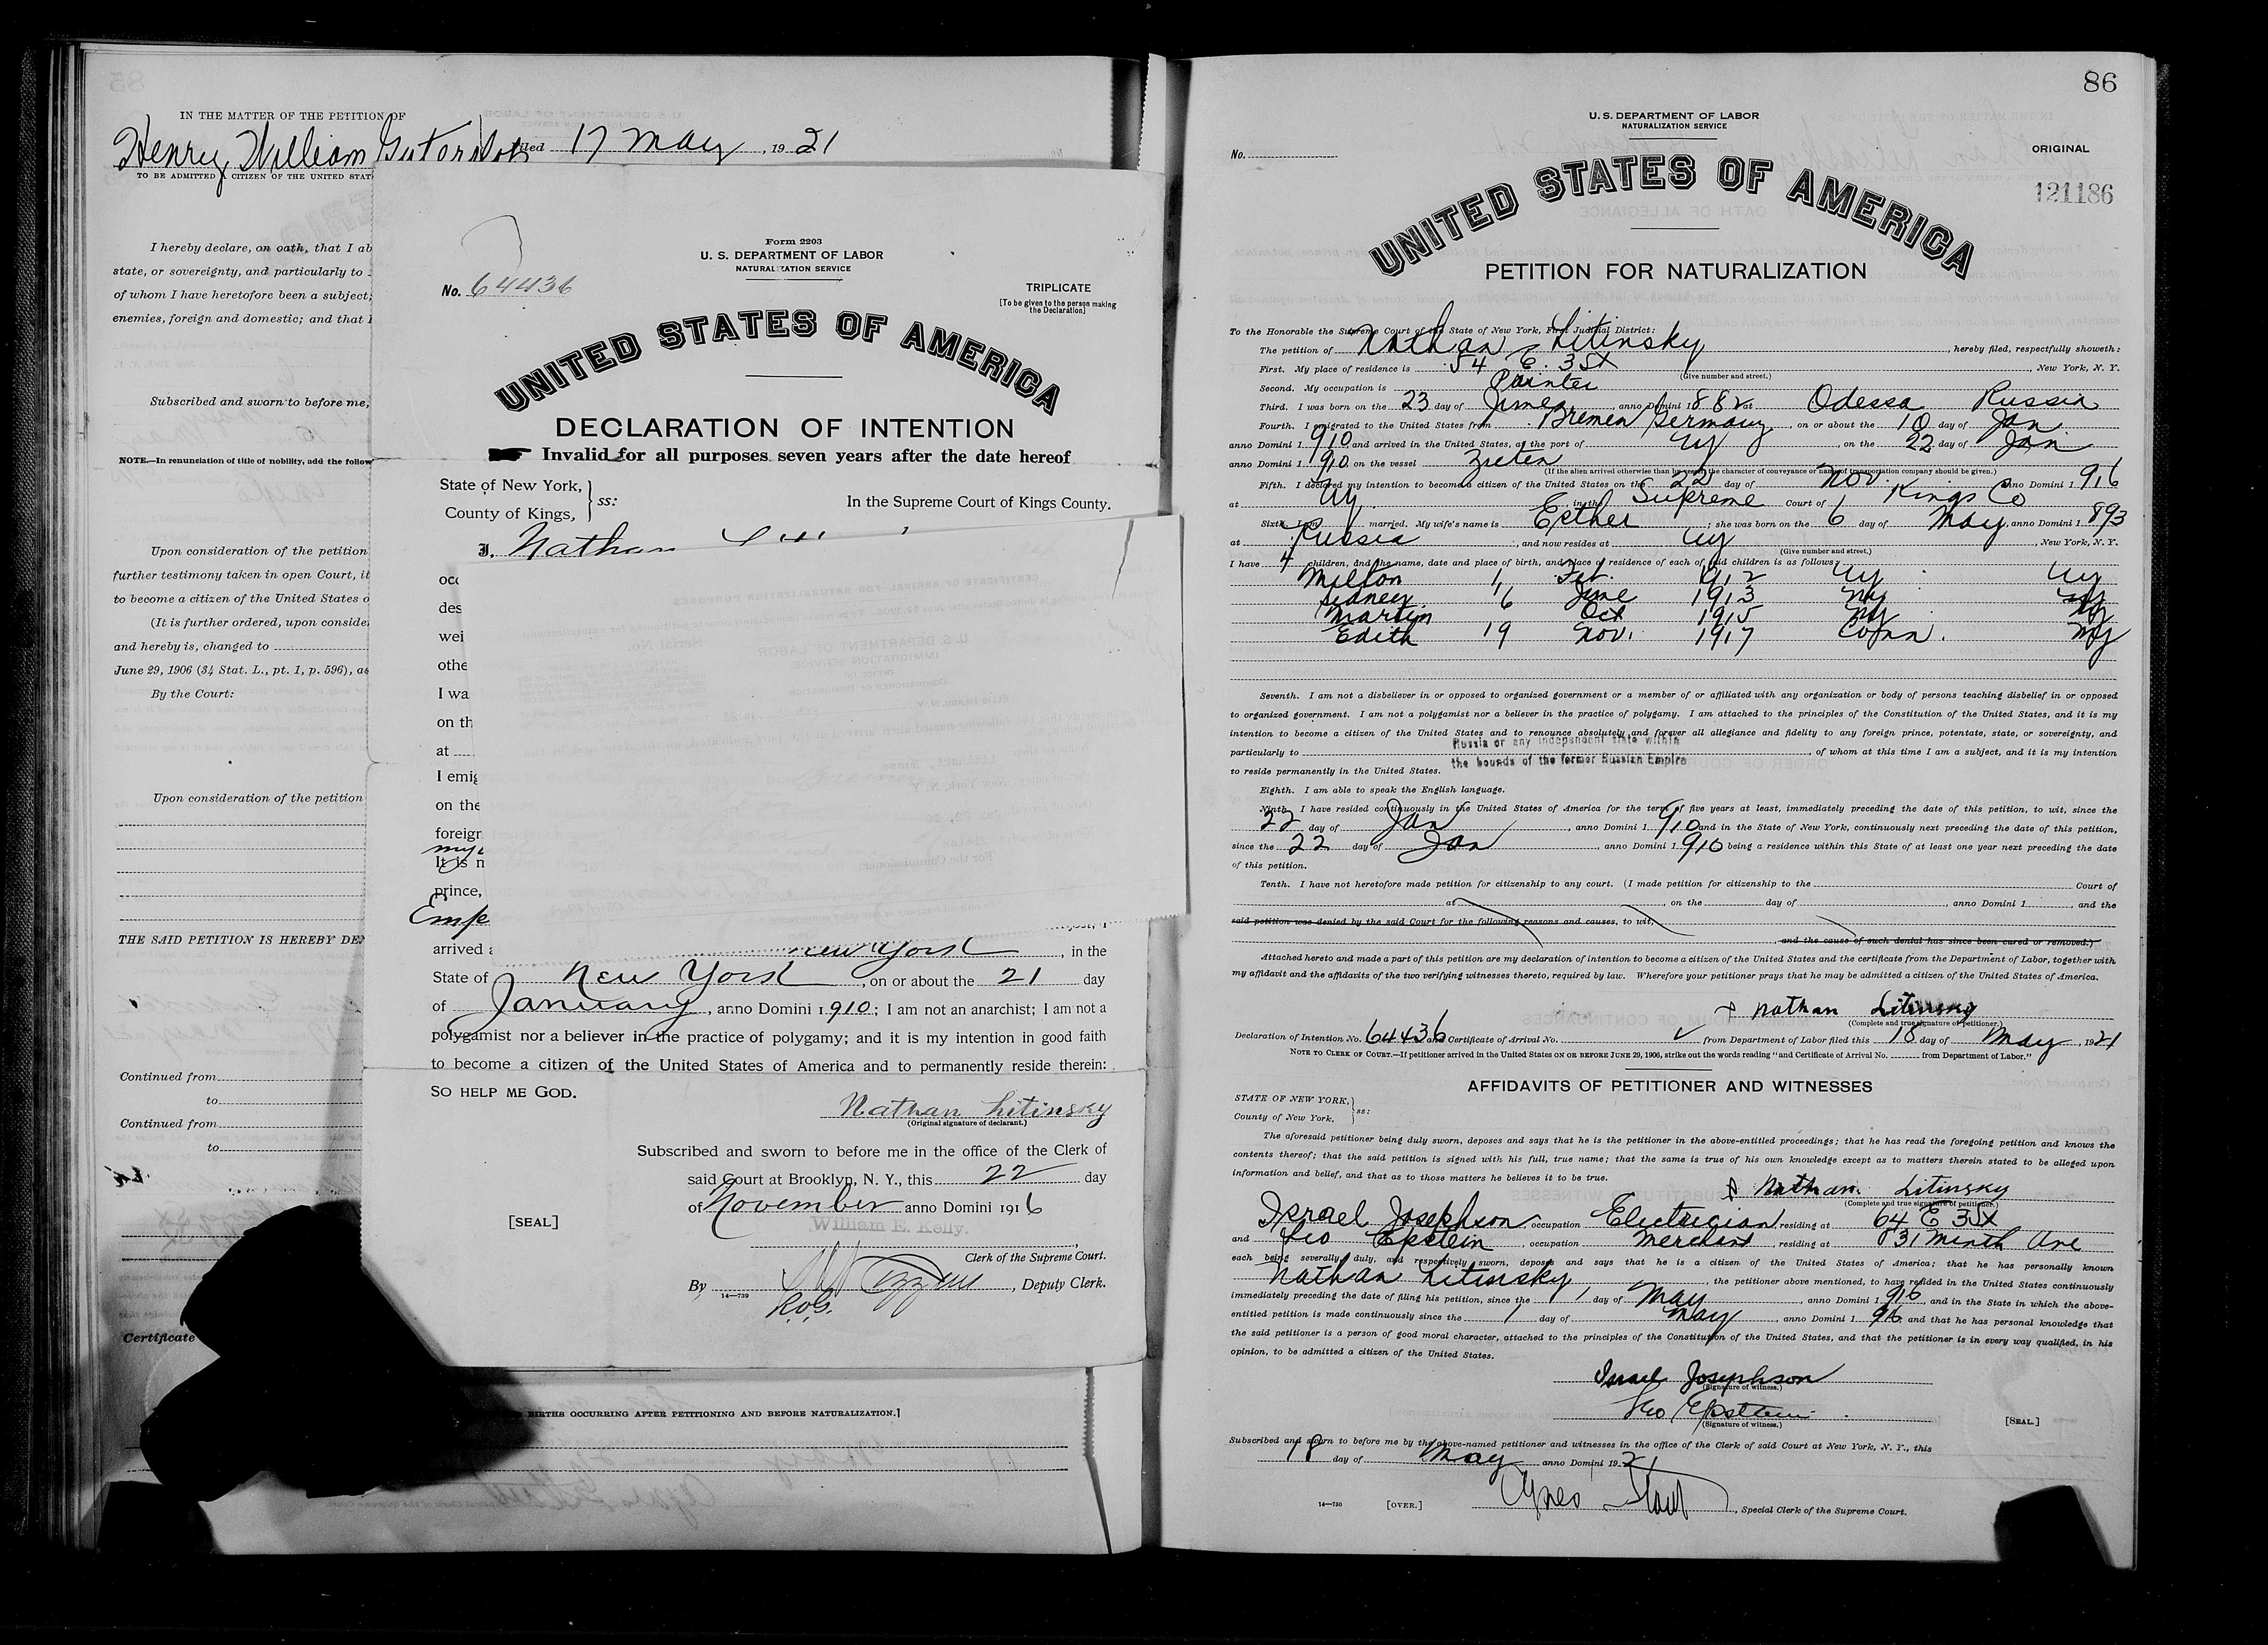 85
IN THE MATTER OF THE PETITION OF
Henry William filed 17 May, 1921
TO BE ADMITTED CITIZEN OF THE UNITED STAT
I hereby declare, on oath, that I ab
state, or sovereignty, and particularly to
of whom I have heretofore been a subject;
enemies, foreign and domestic; and that I
Subscribed and sworn to before me,
NOTE.—In renunciation of title of nobility, add the follow
Upon consideration of the petition
further testimony taken in open Court, it
to become a citizen of the United States o
(It is further ordered, upon conside
and hereby is, changed to
June 29, 1906 (34 Stat. L., pt. 1, p. 596), as
By the Court:
Upon consideration of the petition
THE SAID PETITION IS HEREBY DEN
Continued from
to
Continued from
to
Certificate
BIRTHS OCCURRING AFTER PETITIONING AND BEFORE NATURALIZATION.]
Form 2203
U. S. DEPARTMENT OF LABOR
NATURALIZATION SERVICE
No. 64436
TRIPLICATE
[To be given to the person making
the Declaration]
UNITED STATES OF AMERICA
DECLARATION OF INTENTION
Invalid for all purposes seven years after the date hereof
State of New York,
County of Kings,
ss:
In the Supreme Court of Kings County.
I, Nathan
occ
des
wei
othe
I wa
on th
at
I emig
on the
foreign
my
It is n
prince,
Emp
arrived a New York, in the
State of New York, on or about the 21 day
of January, anno Domini 1910; I am not an anarchist; I am not a
polygamist nor a believer in the practice of polygamy; and it is my intention in good faith
to become a citizen of the United States of America and to permanently reside therein:
SO HELP ME GOD.
Nathan Litinsky
(Original signature of declarant.)
Subscribed and sworn to before me in the office of the Clerk of
said Court at Brooklyn, N. Y., this 22 day
of November anno Domini 1916
[SEAL]
William E. Kelly.
Clerk of the Supreme Court.
By , Deputy Clerk.
14—739
86
U. S. DEPARTMENT OF LABOR
NATURALIZATION SERVICE
No.
ORIGINAL
121186
UNITED STATES OF AMERICA
PETITION FOR NATURALIZATION
To the Honorable the Supreme Court of the State of New York, First Judicial District:
The petition of Nathan Litinsky, hereby filed, respectfully showeth:
First. My place of residence is 54 E. 3 St New York, N. Y.
(Give number and street.)
Second. My occupation is Painter
Third. I was born on the 23 day of June, anno Domini 1882 at Odessa Russia
Fourth. I emigrated to the United States from Bremen Germany, on or about the 10 day of Jan
anno Domini 1910, and arrived in the United States, at the port of NY, on the 22 day of Jan
anno Domini 1910 on the vessel Zieten
(If the alien arrived otherwise than by vessel, the character of conveyance or name of transportation company should be given.)
Fifth. I declared my intention to become a citizen of the United States on the 22 day of Nov. anno Domini 1916
at NY. in the Supreme Court of Kings Co
Sixth. I am married. My wife's name is Esther; she was born on the 6 day of May, anno Domini 1893
at Russia, and now resides at NY, New York, N. Y.
(Give number and street.)
I have 4 children, and the name, date and place of birth, and place of residence of each of said children is as follows:
Milton 1 Feb. 1912 NY NY
Sidney 16 June 1913 NY NY
Martin Oct 1915 NY NY
Edith 19 Nov. 1917 Conn. NY
Seventh. I am not a disbeliever in or opposed to organized government or a member of or affiliated with any organization or body of persons teaching disbelief in or opposed
to organized government. I am not a polygamist nor a believer in the practice of polygamy. I am attached to the principles of the Constitution of the United States, and it is my
intention to become a citizen of the United States and to renounce absolutely and forever all allegiance and fidelity to any foreign prince, potentate, state, or sovereignty, and
particularly to Russia or any independent state within, of whom at this time I am a subject, and it is my intention
to reside permanently in the United States. the bounds of the former Russian Empire
Eighth. I am able to speak the English language.
Ninth. I have resided continuously in the United States of America for the term of five years at least, immediately preceding the date of this petition, to wit, since the
22 day of Jan, anno Domini 1910 and in the State of New York, continuously next preceding the date of this petition,
since the 22 day of Jan, anno Domini 1910 being a residence within this State of at least one year next preceding the date
of this petition.
Tenth. I have not heretofore made petition for citizenship to any court. (I made petition for citizenship to the Court of
at, on the day of, anno Domini 1, and the
said petition was denied by the said Court for the following reasons and causes, to wit,
and the cause of such denial has since been cured or removed.)
Attached hereto and made a part of this petition are my declaration of intention to become a citizen of the United States and the certificate from the Department of Labor, together with
my affidavit and the affidavits of the two verifying witnesses thereto, required by law. Wherefore your petitioner prays that he may be admitted a citizen of the United States of America.
Nathan Litinsky
(Complete and true signature of petitioner.)
Declaration of Intention No. 64436 and Certificate of Arrival No. from Department of Labor filed this 18 day of May, 1921
NOTE TO CLERK OF COURT.—If petitioner arrived in the United States ON OR BEFORE JUNE 29, 1906, strike out the words reading "and Certificate of Arrival No. from Department of Labor."
AFFIDAVITS OF PETITIONER AND WITNESSES
STATE OF NEW YORK,
County of New York,
ss:
The aforesaid petitioner being duly sworn, deposes and says that he is the petitioner in the above-entitled proceedings; that he has read the foregoing petition and knows the
contents thereof; that the said petition is signed with his full, true name; that the same is true of his own knowledge except as to matters therein stated to be alleged upon
information and belief, and that as to those matters he believes it to be true.
Nathan Litinsky
(Complete and true signature of petitioner.)
Israel Josephson occupation Electrician residing at 64 E 3 St
and Leo Epstein, occupation Merchant, residing at 831 Ninth Ave
each being severally, duly, and respectively sworn, deposes and says that he is a citizen of the United States of America; that he has personally known
Nathan Litinsky, the petitioner above mentioned, to have resided in the United States continuously
immediately preceding the date of filing his petition, since the 1 day of May, anno Domini 1916, and in the State in which the above-
entitled petition is made continuously since the 1 day of May, anno Domini 1916 and that he has personal knowledge that
the said petitioner is a person of good moral character, attached to the principles of the Constitution of the United States, and that the petitioner is in every way qualified, in his
opinion, to be admitted a citizen of the United States.
Israel Josephson
(Signature of witness.)
Leo Epstein
(Signature of witness.)
[SEAL.]
Subscribed and sworn to before me by the above-named petitioner and witnesses in the office of the Clerk of said Court at New York, N. Y., this
18 day of May anno Domini 1921
14—730 [OVER.] , Special Clerk of the Supreme Court.